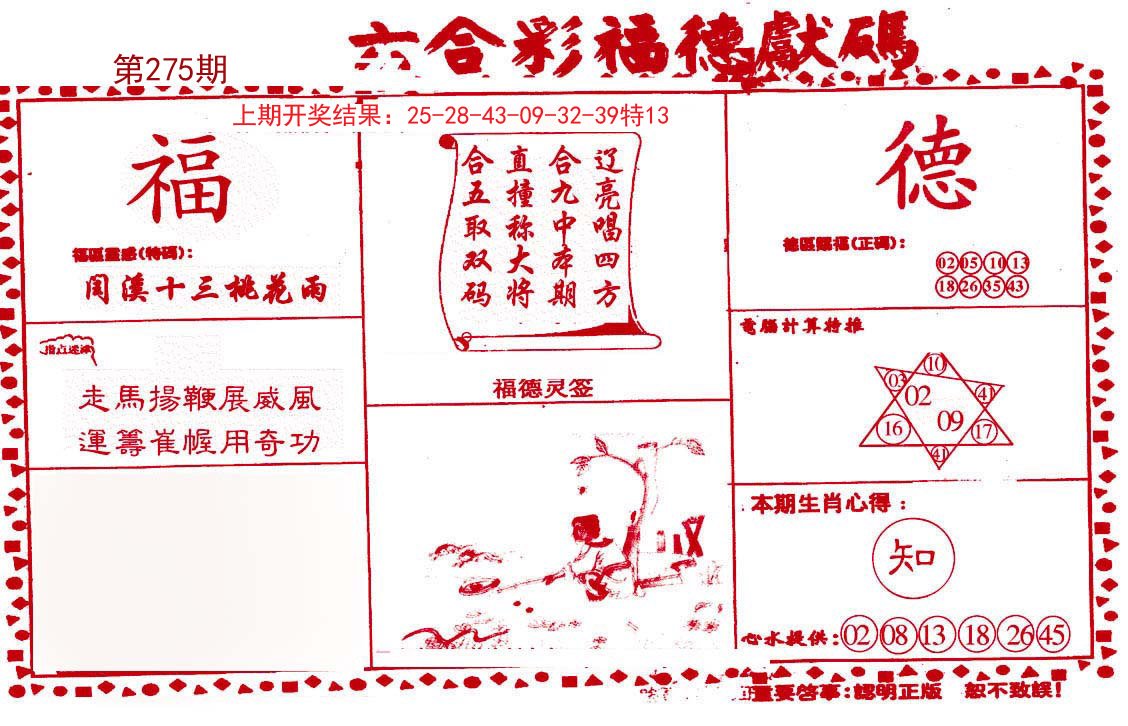 六合彩福德獻碼
第275期
上期开奖结果：25-28-43-09-32-39特13
福
福區靈感(特碼)：
閏溪十三桃花雨
指点迷津
走馬揚鞭展威風
運籌崔幄用奇功
辽亮唱四方
合九中本期
直撞称大将
合五取双码
福德灵签
德
德區賜福(正碼)：
02 05 10 13
18 26 35 43
電腦計算特推
10
03 41
02
09
16 17
41
本期生肖心得：
知
心水提供：02 08 13 18 26 45
重要啓事：認明正版 恕不致誤！